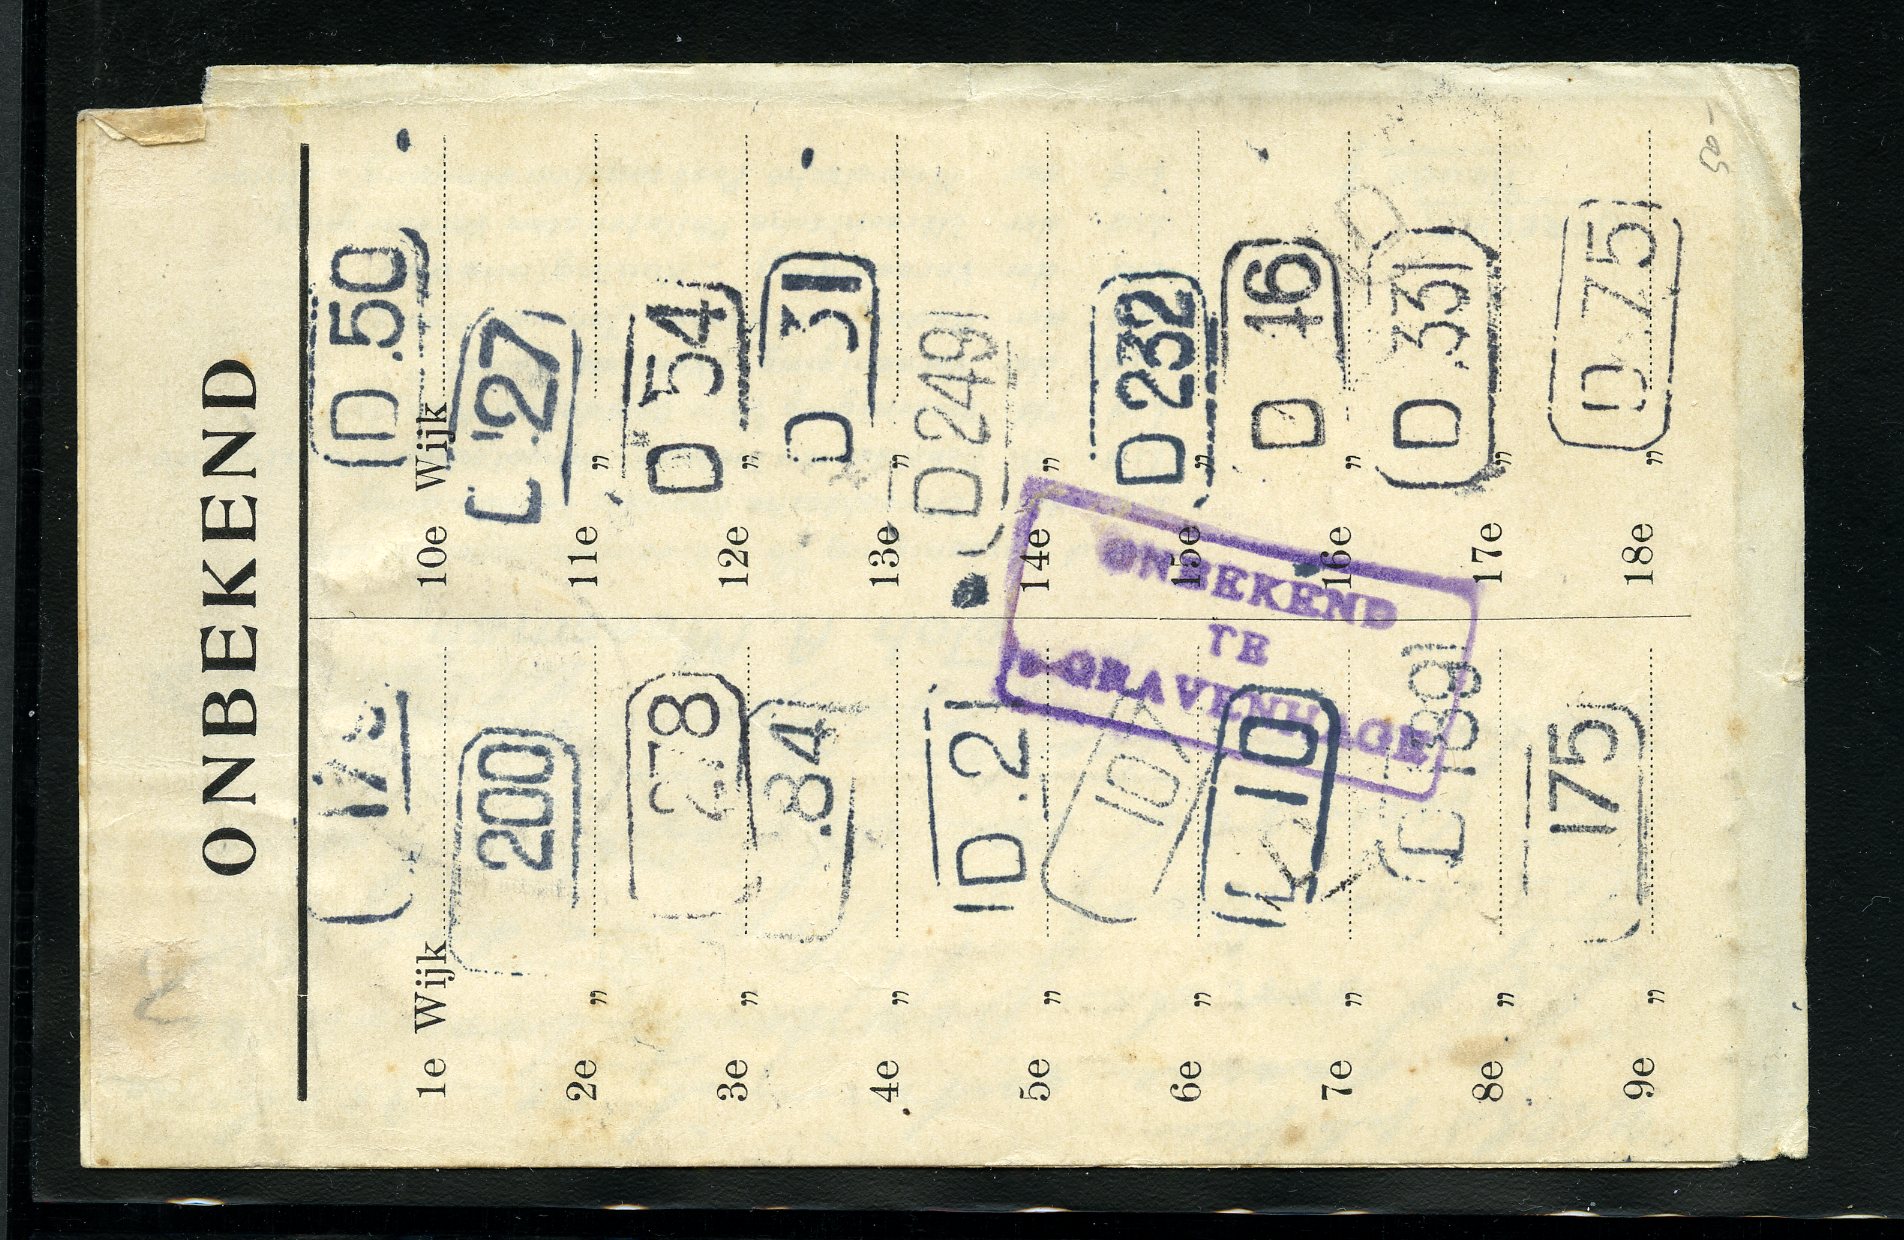 ONBEKEND
1e Wijk
2e " 200
3e " 278
4e " .84
5e " D.2
6e " 107
7e " 10
8e " D 139
9e " 175
10e Wijk D.50
11e " .27
12e " D 54
13e " D 31
14e " D 249
15e " D 232
16e " D 16
17e " D .33
18e " D.75
ONBEKEND
TE
'S-GRAVENHAGE
50-